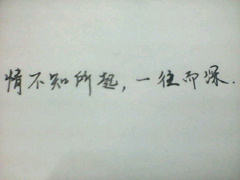 情不知所起，一往而深.